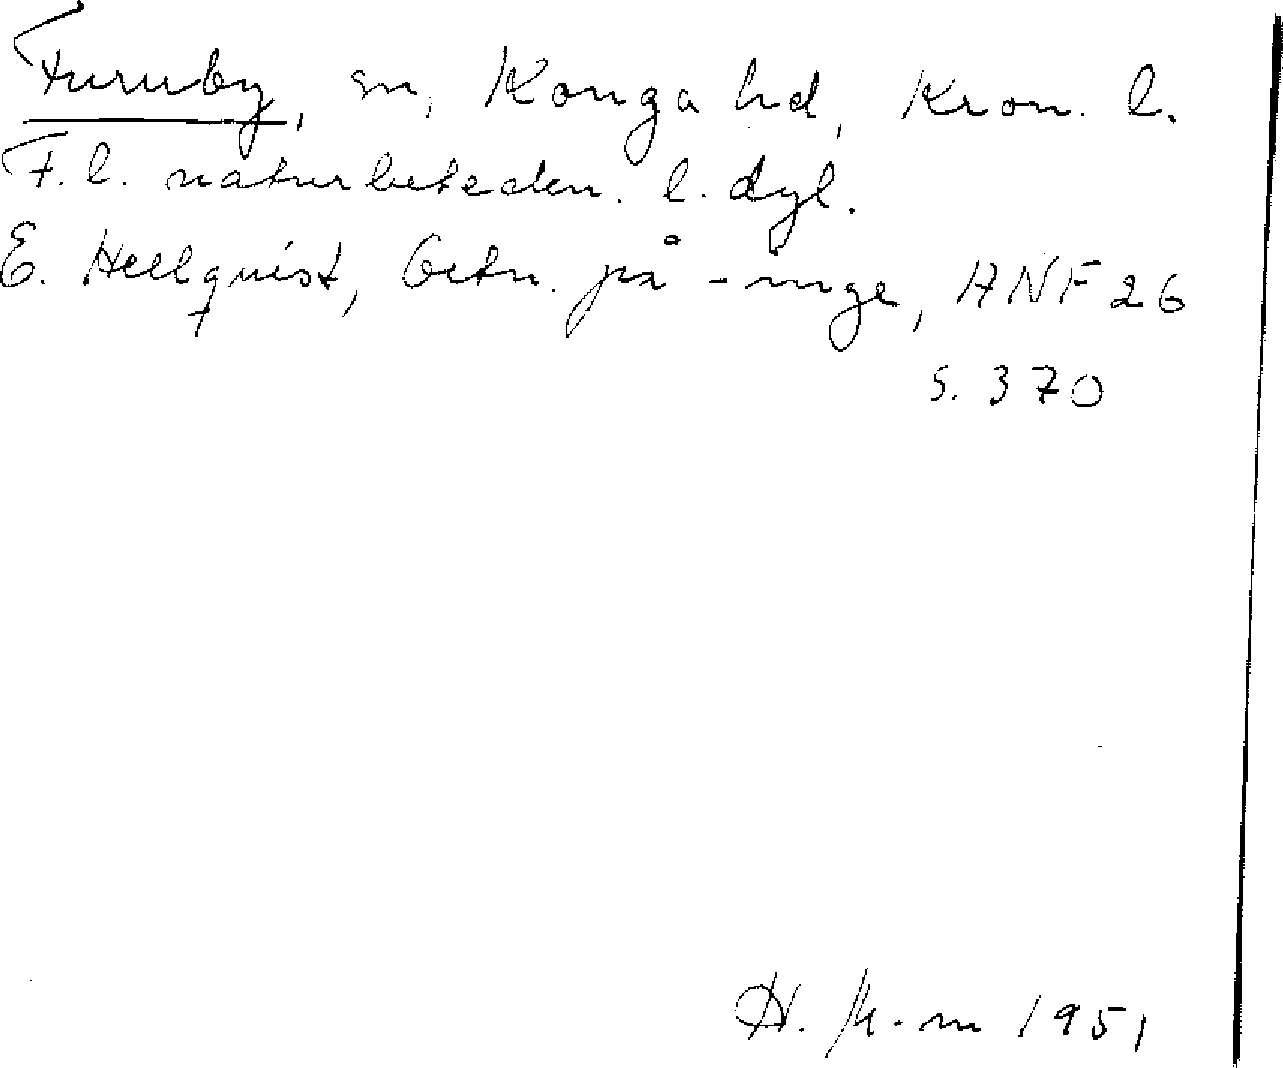 Furuby, sn, Konga hd, Kron. l.
F. l. naturbeteckn. l. dyl.
E. Hellquist, Ortn. på -inge, ANF 26
s. 370
H. 1951